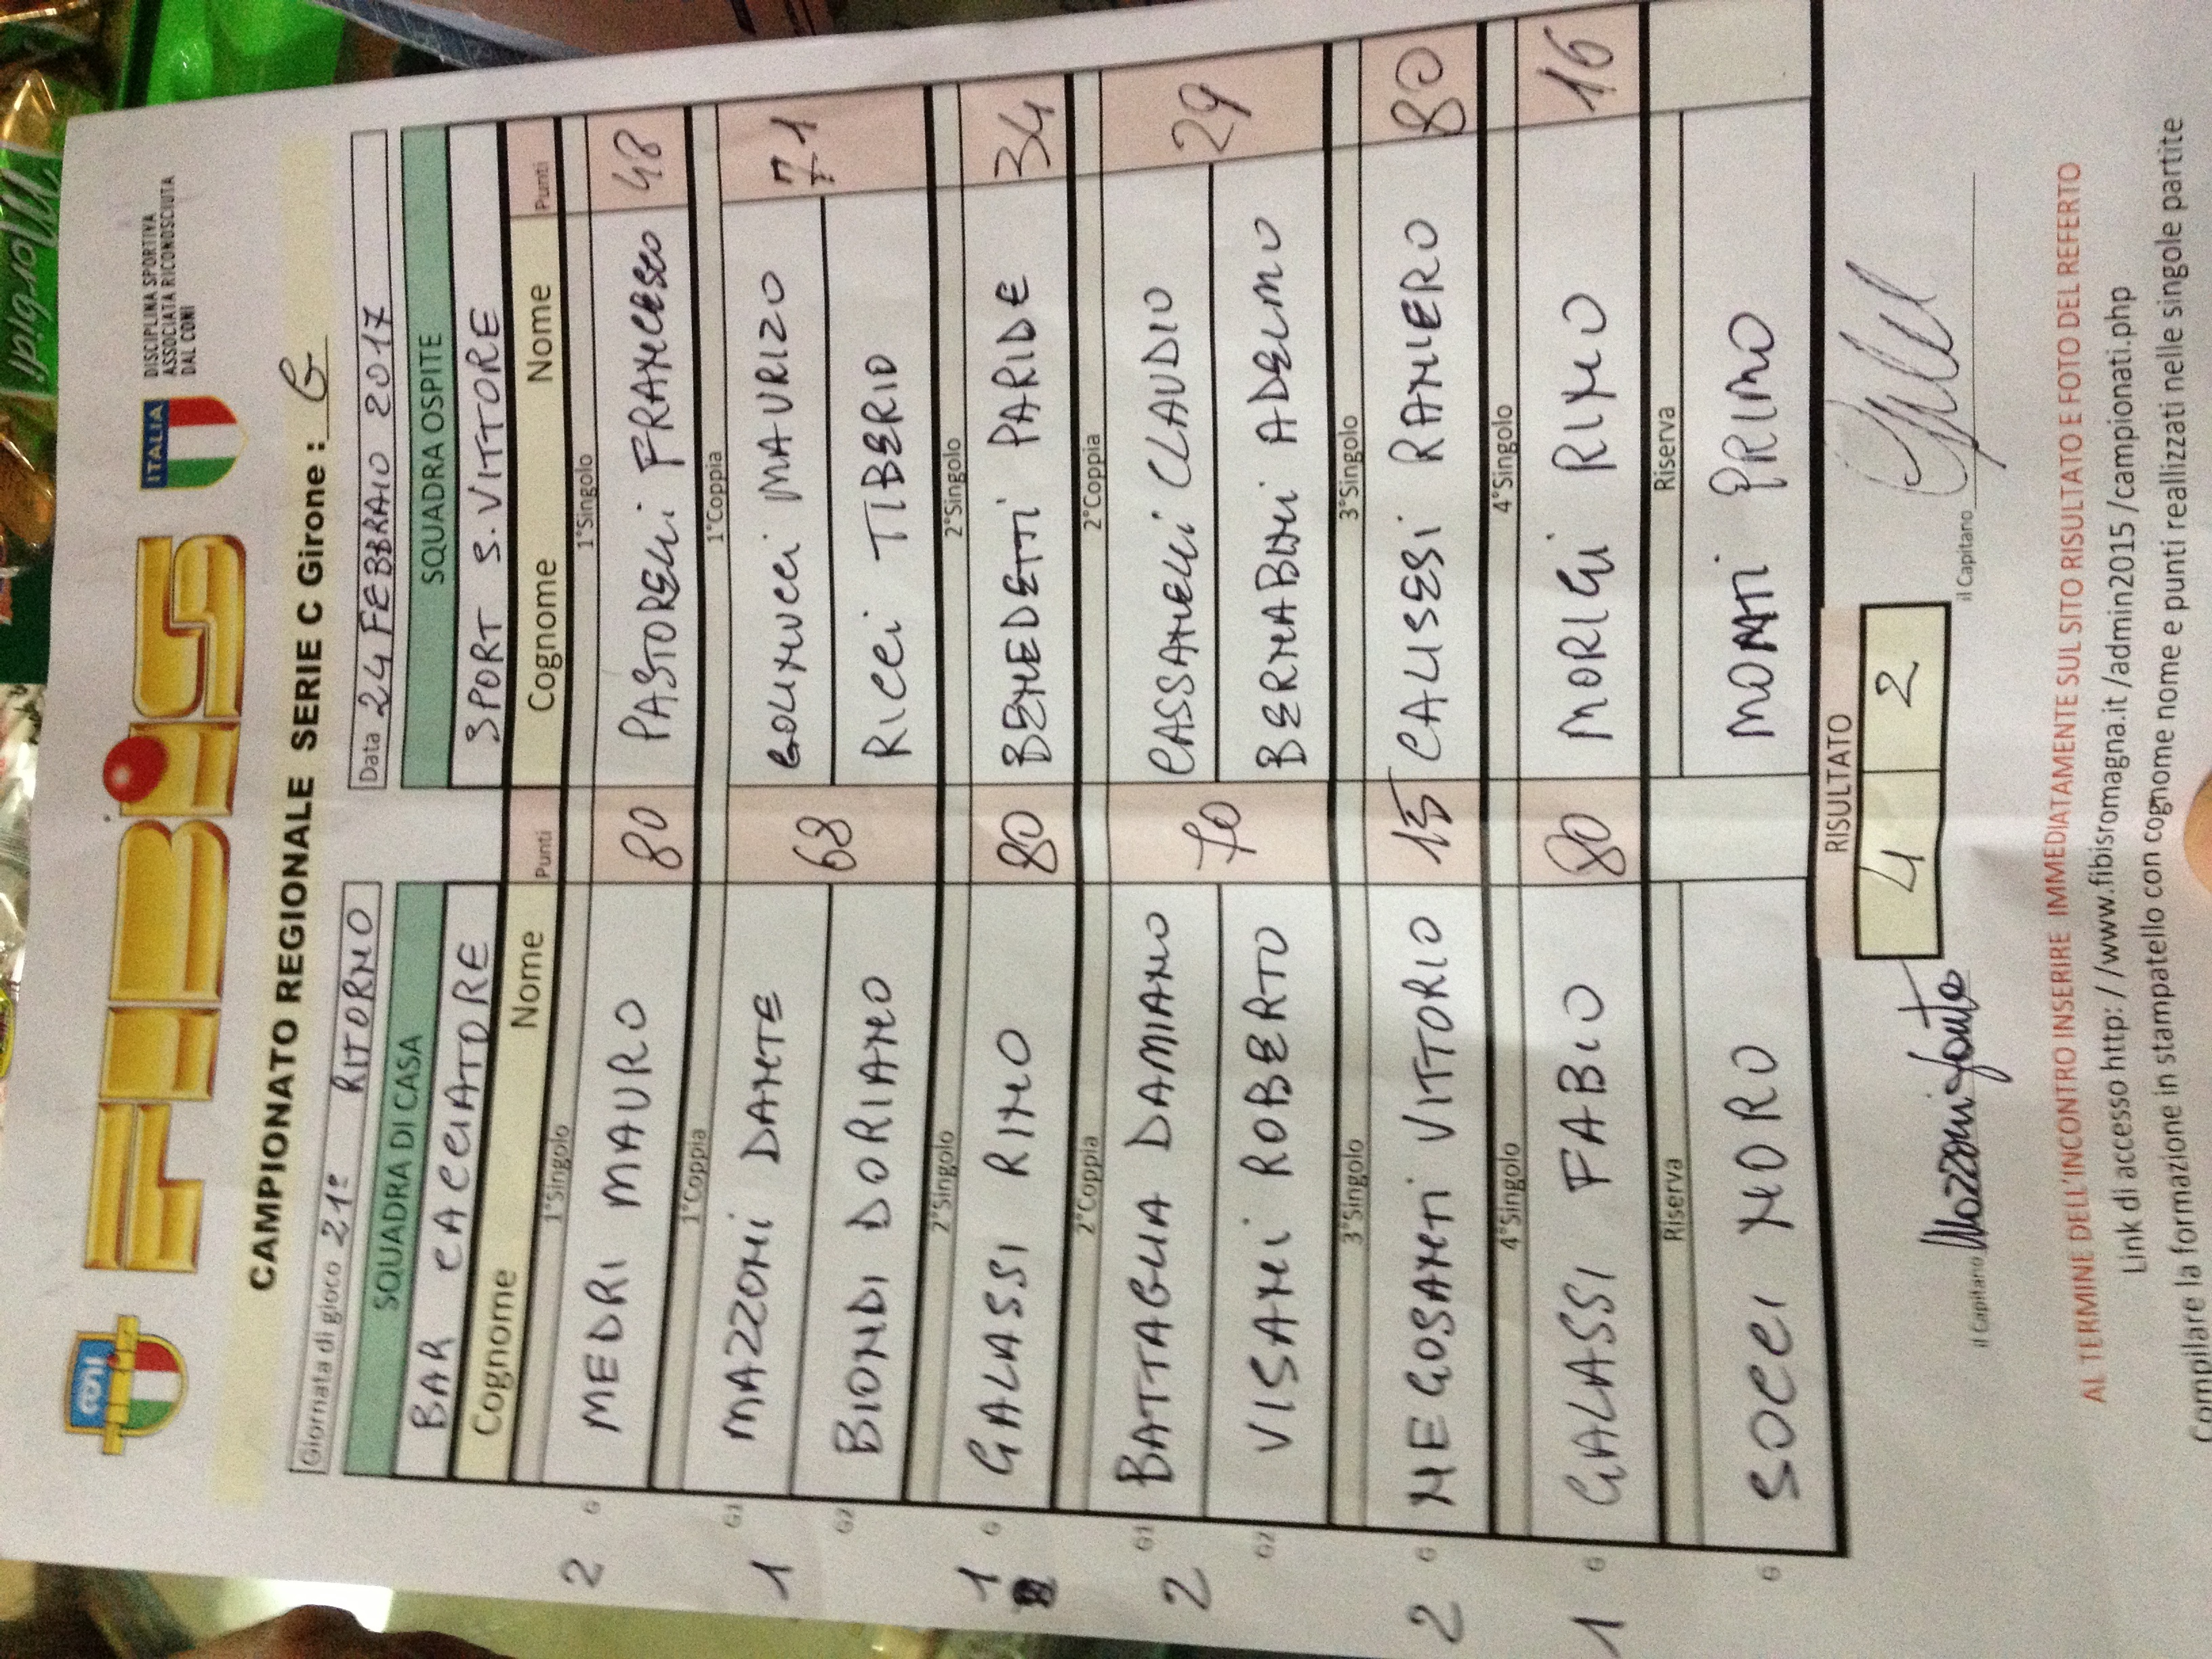 Morgidi
CONI
FIBiS
ITALIA
DISCIPLINA SPORTIVA
ASSOCIATA RICONOSCIUTA
DAL CONI
CAMPIONATO REGIONALE SERIE C Girone : G
Giornata di gioco 21° RITORNO Data 24 FEBBRAIO 2017
SQUADRA DI CASA SQUADRA OSPITE
BAR CACCIATORE SPORT S. VITTORE
Cognome Nome Punti Cognome Nome Punti
1°Singolo 1°Singolo
2 G MEDRI MAURO 80 PASTORELLI FRANCESCO 48
1°Coppia 1°Coppia
1 G1 MAZZONI DANTE 68 GOLINUCCI MAURIZO 71
G2 BIONDI DORIANO RICCI TIBERIO
2°Singolo 2°Singolo
1 G GALASSI RINO 80 BENEDETTI PARIDE 34
2°Coppia 2°Coppia
2 G1 BATTAGLIA DAMIANO 70 CASSANELLI CLAUDIO 29
G2 VISANI ROBERTO BERNABINI ADELMO
3°Singolo 3°Singolo
2 G NEGOSANTI VITTORIO 15 CALISESI RANIERO 80
4°Singolo 4°Singolo
1 G GALASSI FABIO 80 MORIGI RINO 16
Riserva Riserva
G SOCCI NORO MONTI PRIMO
RISULTATO
4 2
il Capitano Mazzoni Dante il Capitano
AL TERMINE DELL'INCONTRO INSERIRE IMMEDIATAMENTE SUL SITO RISULTATO E FOTO DEL REFERTO
Link di accesso http: / /www.fibisromagna.it /admin2015 /campionati.php
Compilare la formazione in stampatello con cognome nome e punti reallizzati nelle singole partite